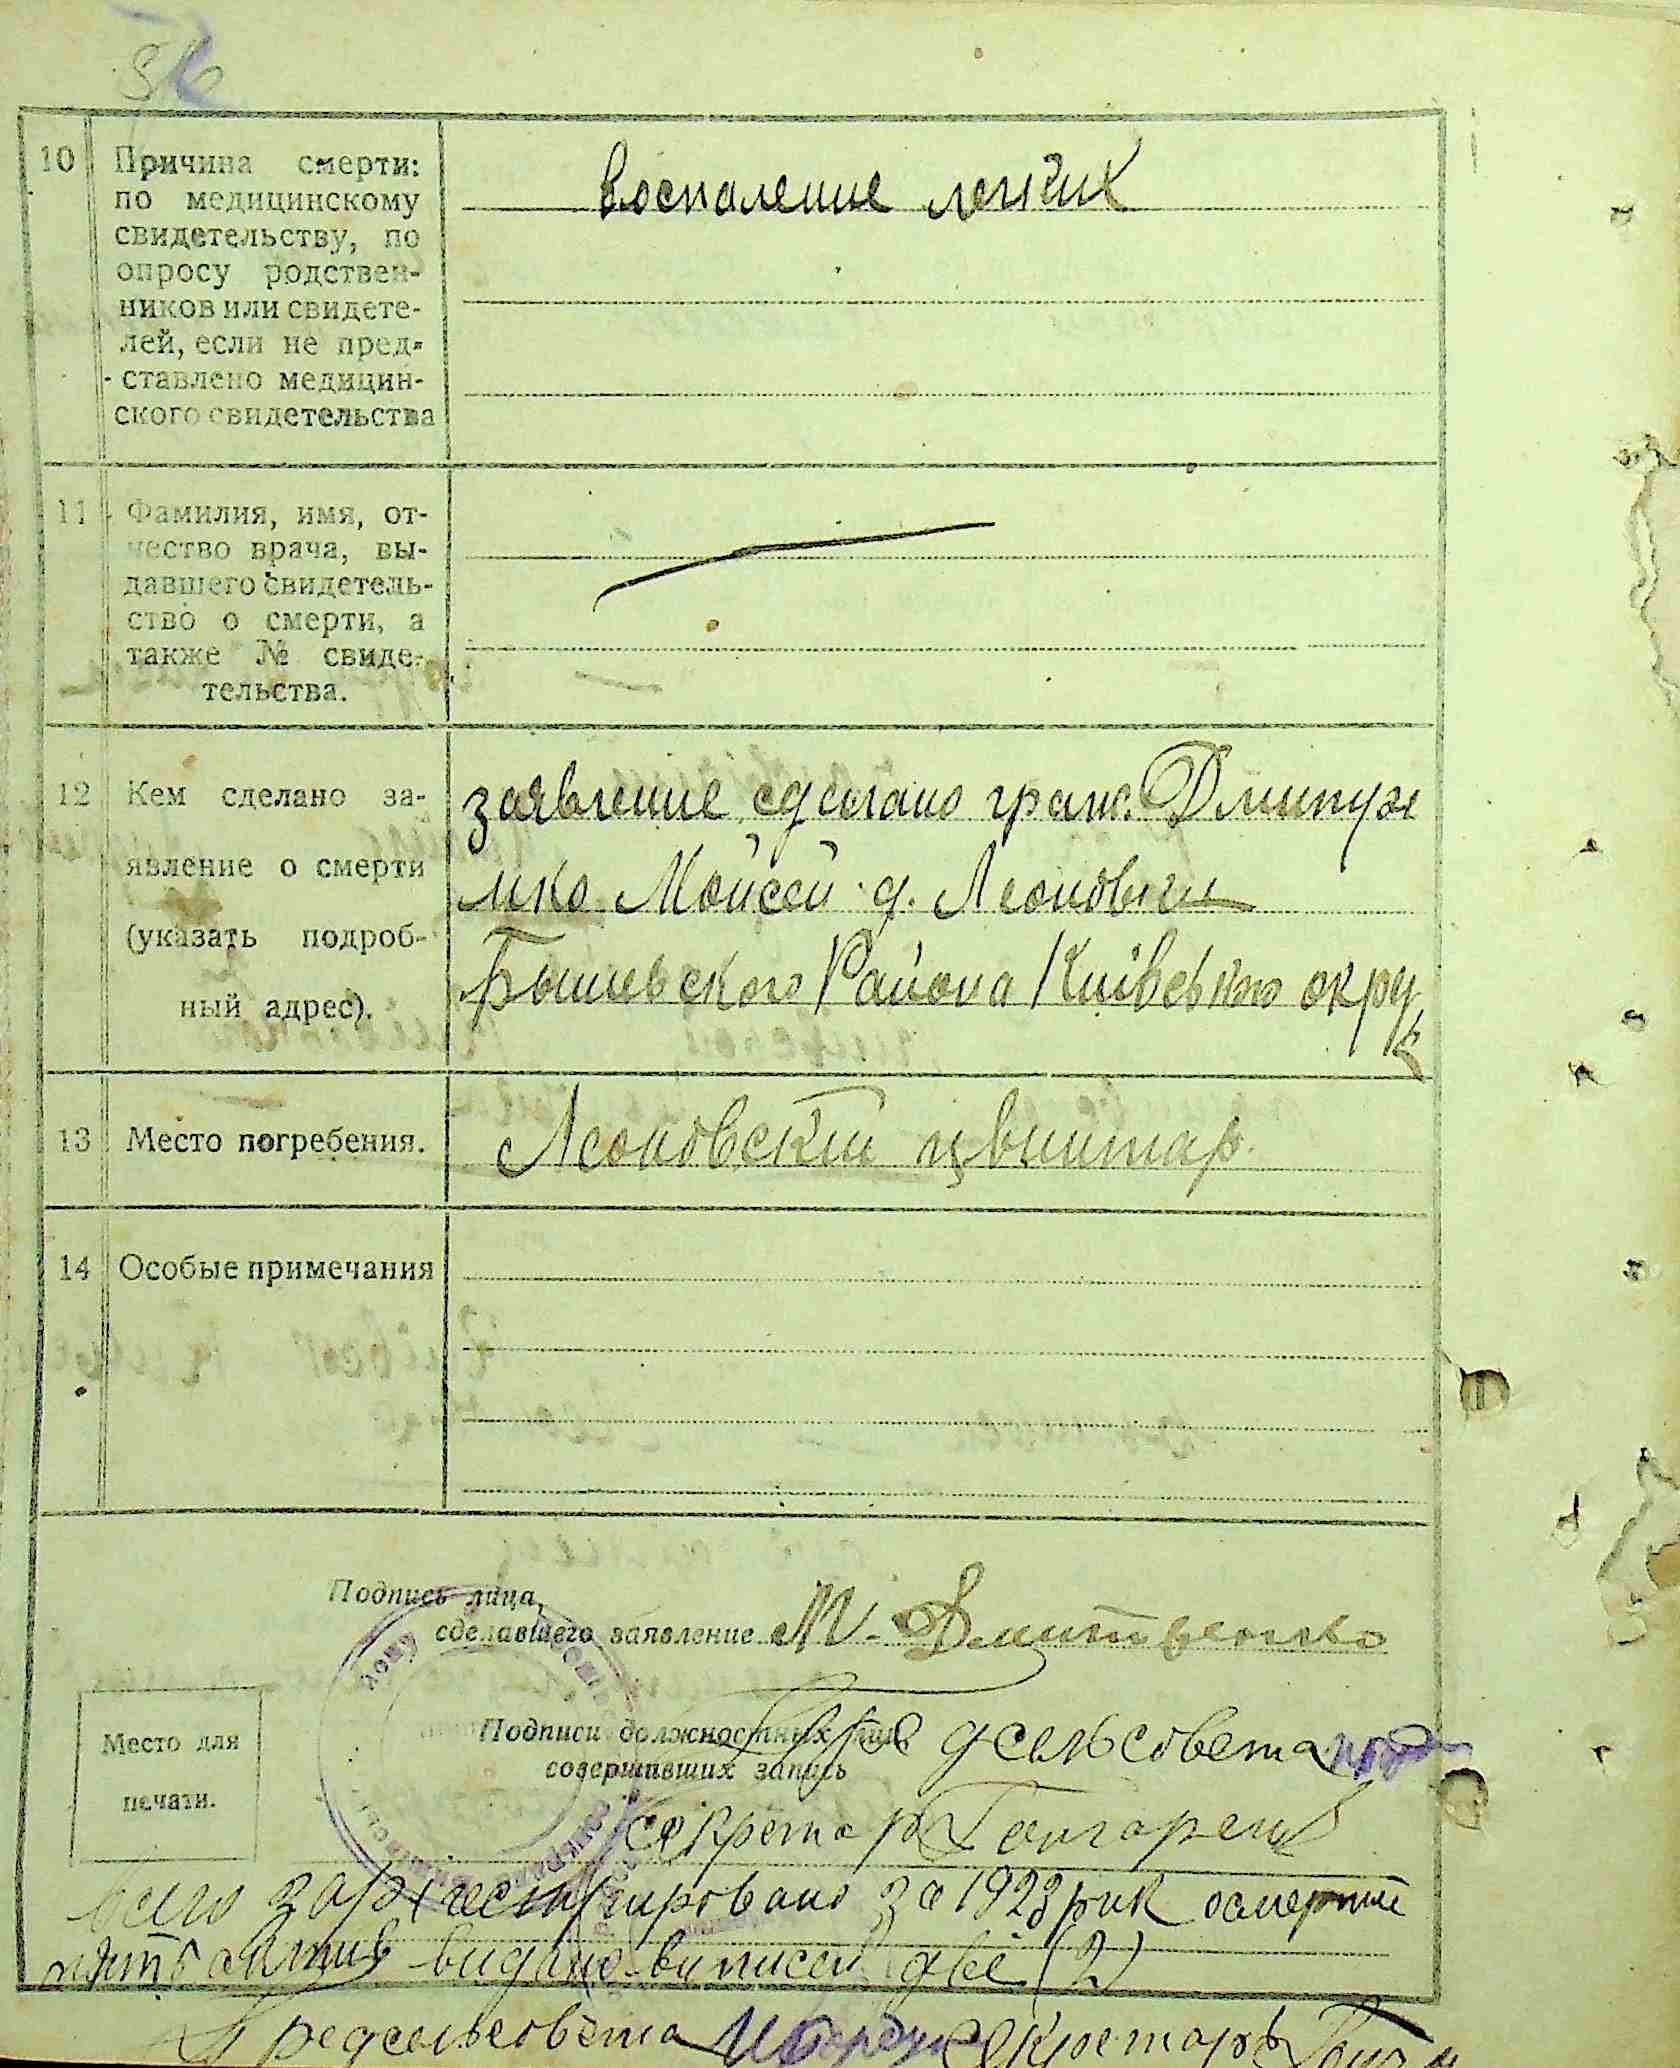 10 Причина смерти:
по медицинскому
свидетельству, по
опросу родствен-
ников или свидете-
лей, если не пред-
ставлено медицин-
ского свидетельства
воспаление легких
11 Фамилия, имя, от-
чество врача, вы-
давшего свидетель-
ство о смерти, а
также № свиде-
тельства.
12 Кем сделано за-
явление о смерти
(указать подроб-
ный адрес).
заявление сделано граж.
Мойсей д. Леоновки
Бышевского Района Київського округ
13 Место погребения.
Леоновский цвинтар.
14 Особые примечания
Подпись лица,
сделавшего заявление М. Дмитренко
Подписи должностных лиц
совершивших запись
Пред сельсовета
Место для
печати.
Секретарь
всего зарегестрировано за 1923 рик
актив видано виписей две (2)
Предсельсовета Секретарь